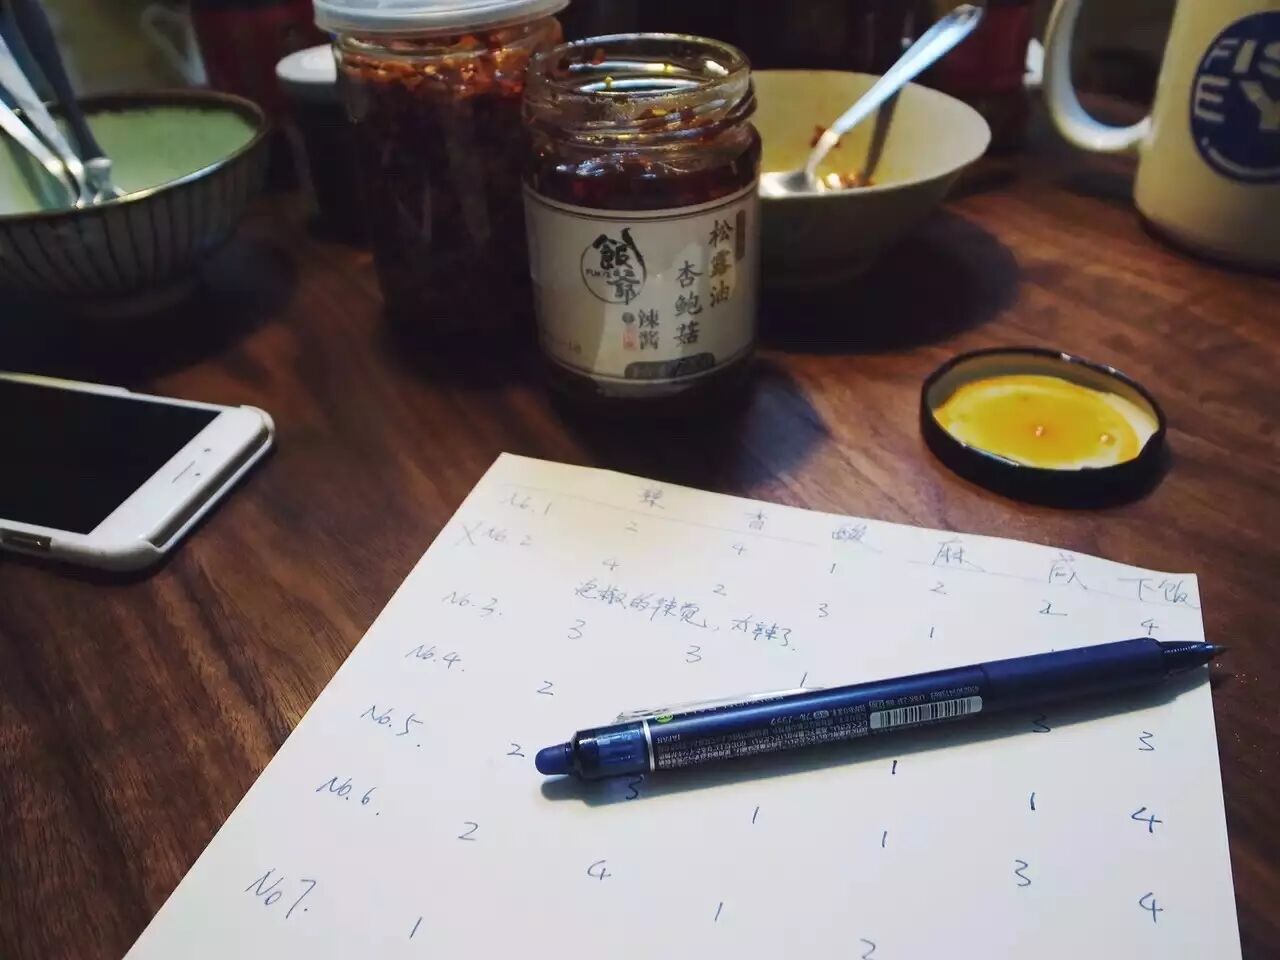 飯爺
松露油
杏鲍菇
辣酱
FIS
E Y
JAPAN
辣 香 酸 麻 咸 下饭
No.1 2 4 1 2 2 4
X No.2 4 2 3 1
泡椒的辣觉，太辣了.
No.3. 3 3 1
No.4. 2
No.5. 2 3 1 3 3
No.6. 2 4 1 1 1 4
No7. 1 1 2 3 4